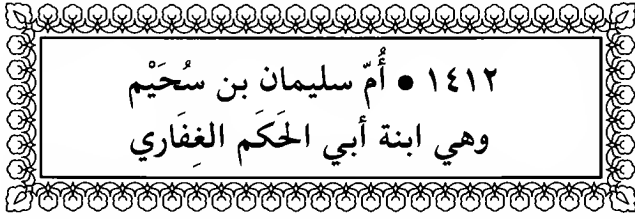 ١٤١٢ • أُمّ سليمان بن سُحَيْم
وهي ابنة أبي الحَكَم الغِفَاري